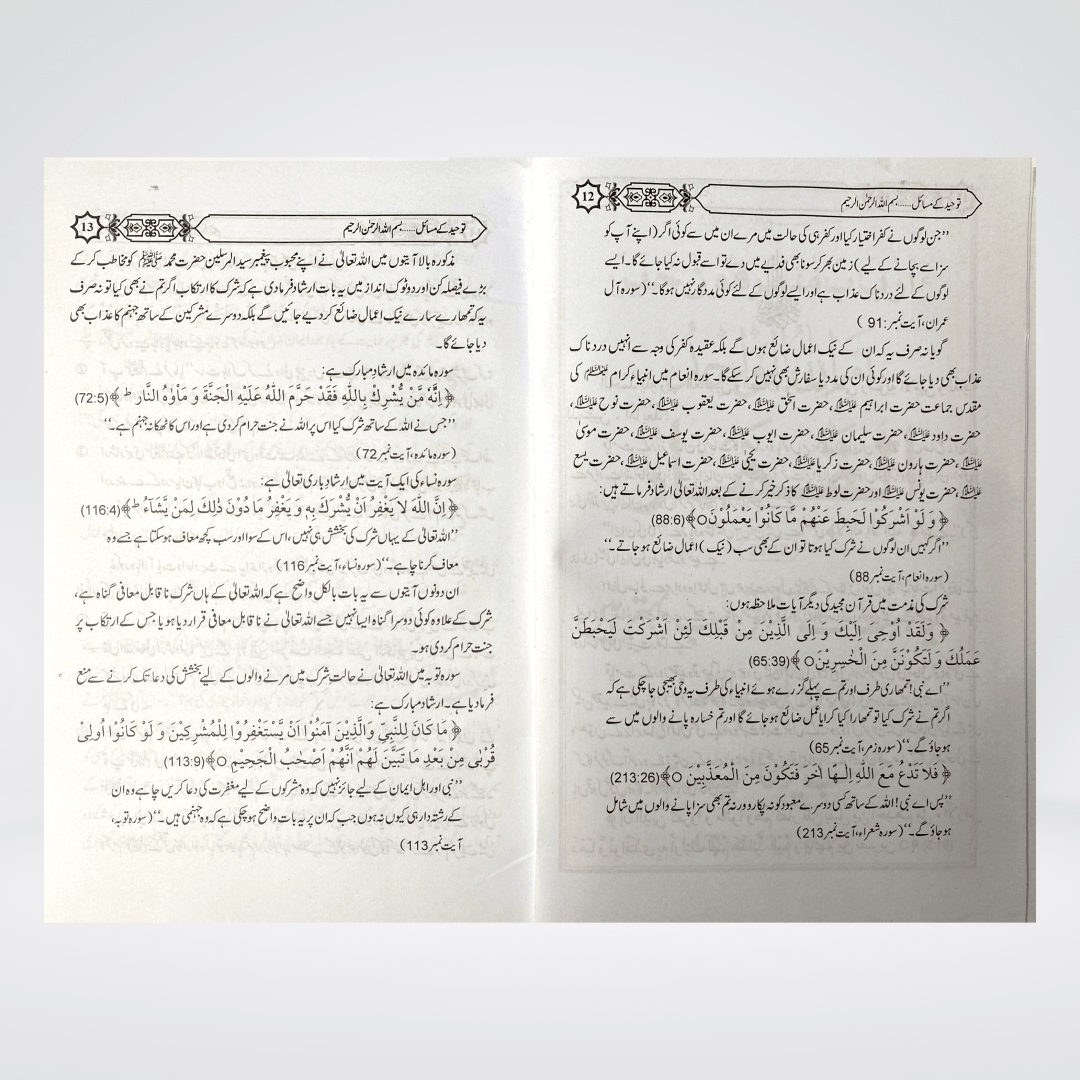 توحید کے مسائل......بسم اللہ الرحمٰن الرحیم
12
’’جن لوگوں نے کفر اختیار کیا اور کفر ہی کی حالت میں مرے ان میں سے کوئی اگر (اپنے آپ کو
سزا سے بچانے کے لیے) زمین بھر کر سونا بھی فدیے میں دے تو اسے قبول نہ کیا جائے گا۔ ایسے
لوگوں کے لئے دردناک عذاب ہے اور ایسے لوگوں کے لئے کوئی مددگار نہیں ہوگا۔‘‘ (سورہ آل
عمران، آیت نمبر: 91)
گویا نہ صرف یہ کہ ان کے نیک اعمال ضائع ہوں گے بلکہ عقیدہ کفر کی وجہ سے انہیں دردناک
عذاب بھی دیا جائے گا اور کوئی ان کی مدد یا سفارش بھی نہیں کر سکے گا۔ سورہ انعام میں انبیاء کرام علیہم السلام کی
مقدس جماعت حضرت ابراہیم علیہ السلام، حضرت اسحٰق علیہ السلام، حضرت یعقوب علیہ السلام، حضرت نوح علیہ السلام،
حضرت داود علیہ السلام، حضرت سلیمان علیہ السلام، حضرت ایوب علیہ السلام، حضرت یوسف علیہ السلام، حضرت موسیٰ
علیہ السلام، حضرت ہارون علیہ السلام، حضرت زکریا علیہ السلام، حضرت یحییٰ علیہ السلام، حضرت اسماعیل علیہ السلام، حضرت یسع
علیہ السلام، حضرت یونس علیہ السلام اور حضرت لوط علیہ السلام کا ذکر خیر کرنے کے بعد اللہ تعالیٰ ارشاد فرماتے ہیں:
﴿ وَ لَوْ اَشْرَكُوْا لَحَبِطَ عَنْهُمْ مَّا كَانُوْا يَعْمَلُوْنَ○﴾(88:6)
’’اگر کہیں ان لوگوں نے شرک کیا ہوتا تو ان کے بھی سب (نیک) اعمال ضائع ہو جاتے۔‘‘
(سورہ انعام، آیت نمبر 88)
شرک کی مذمت میں قرآن مجید کی دیگر آیات ملاحظہ ہوں:
﴿ وَلَقَدْ اُوْحِیَ اِلَيْكَ وَ اِلَى الَّذِيْنَ مِنْ قَبْلِكَ لَئِنْ اَشْرَكْتَ لَيَحْبَطَنَّ
عَمَلُكَ وَ لَتَكُوْنَنَّ مِنَ الْخٰسِرِيْنَ○ ﴾(65:39)
’’اے نبی! تمھاری طرف اور تم سے پہلے گزرے ہوئے انبیاء کی طرف یہ وحی بھیجی جا چکی ہے کہ
اگر تم نے شرک کیا تو تمھارا کیا کرایا عمل ضائع ہو جائے گا اور تم خسارہ پانے والوں میں سے
ہو جاؤ گے۔‘‘ (سورہ زمر، آیت نمبر 65)
﴿ فَلَا تَدْعُ مَعَ اللّٰهِ اِلٰـهًا اٰخَرَ فَتَكُوْنَ مِنَ الْمُعَذَّبِيْنَ ○﴾(213:26)
’’پس اے نبی! اللہ کے ساتھ کسی دوسرے معبود کو نہ پکارو ورنہ تم بھی سزا پانے والوں میں شامل
ہو جاؤ گے۔‘‘ (سورہ شعراء، آیت نمبر 213)
توحید کے مسائل......بسم اللہ الرحمٰن الرحیم
13
مذکورہ بالا آیتوں میں اللہ تعالیٰ نے اپنے محبوب پیغمبر سید المرسلین حضرت محمد ﷺ کو مخاطب کر کے
بڑے فیصلہ کن اور دو ٹوک انداز میں یہ بات ارشاد فرما دی ہے کہ شرک کا ارتکاب اگر تم نے بھی کیا تو نہ صرف
یہ کہ تمھارے سارے نیک اعمال ضائع کر دیے جائیں گے بلکہ دوسرے مشرکین کے ساتھ جہنم کا عذاب بھی
دیا جائے گا۔
سورہ مائدہ میں ارشاد مبارک ہے:
﴿ اِنَّهٗ مَنْ يُّشْرِكْ بِاللّٰهِ فَقَدْ حَرَّمَ اللّٰهُ عَلَيْهِ الْجَنَّةَ وَ مَاْوٰهُ النَّار ط ﴾(72:5)
’’جس نے اللہ کے ساتھ شرک کیا اس پر اللہ نے جنت حرام کر دی ہے اور اس کا ٹھکانہ جہنم ہے۔‘‘
(سورہ مائدہ، آیت نمبر 72)
سورہ نساء کی ایک آیت میں ارشادِ باری تعالیٰ ہے:
﴿ اِنَّ اللّٰهَ لَا يَغْفِرُ اَنْ يُّشْرَكَ بِهٖ وَ يَغْفِرُ مَا دُوْنَ ذٰلِكَ لِمَنْ يَّشَآءُ ط﴾(116:4)
’’اللہ تعالیٰ کے یہاں شرک کی بخشش ہی نہیں، اس کے سوا اور سب کچھ معاف ہو سکتا ہے جسے وہ
معاف کرنا چاہے۔‘‘ (سورہ نساء، آیت نمبر 116)
ان دونوں آیتوں سے یہ بات بالکل واضح ہے کہ اللہ تعالیٰ کے ہاں شرک ناقابل معافی گناہ ہے،
شرک کے علاوہ کوئی دوسرا گناہ ایسا نہیں جسے اللہ تعالیٰ نے ناقابل معافی قرار دیا ہو یا جس کے ارتکاب پر
جنت حرام کر دی ہو۔
سورہ توبہ میں اللہ تعالیٰ نے حالت شرک میں مرنے والوں کے لیے بخشش کی دعا تک کرنے سے منع
فرما دیا ہے۔ ارشاد مبارک ہے:
﴿ مَا كَانَ لِلنَّبِيِّ وَالَّذِيْنَ آمَنُوْا اَنْ يَّسْتَغْفِرُوْا لِلْمُشْرِكِيْنَ وَ لَوْ كَانُوْا اُولِيْ
قُرْبٰى مِنْ بَعْدِ مَا تَبَيَّنَ لَهُمْ اَنَّهُمْ اَصْحٰبُ الْجَحِيْمِ ○﴾(113:9)
’’نبی اور اہل ایمان کے لیے جائز نہیں کہ وہ مشرکوں کے لیے مغفرت کی دعا کریں چاہے وہ ان
کے رشتہ دار ہی کیوں نہ ہوں جب کہ ان پر یہ بات واضح ہو چکی ہے کہ وہ جہنمی ہیں۔‘‘ (سورہ توبہ،
آیت نمبر 113)